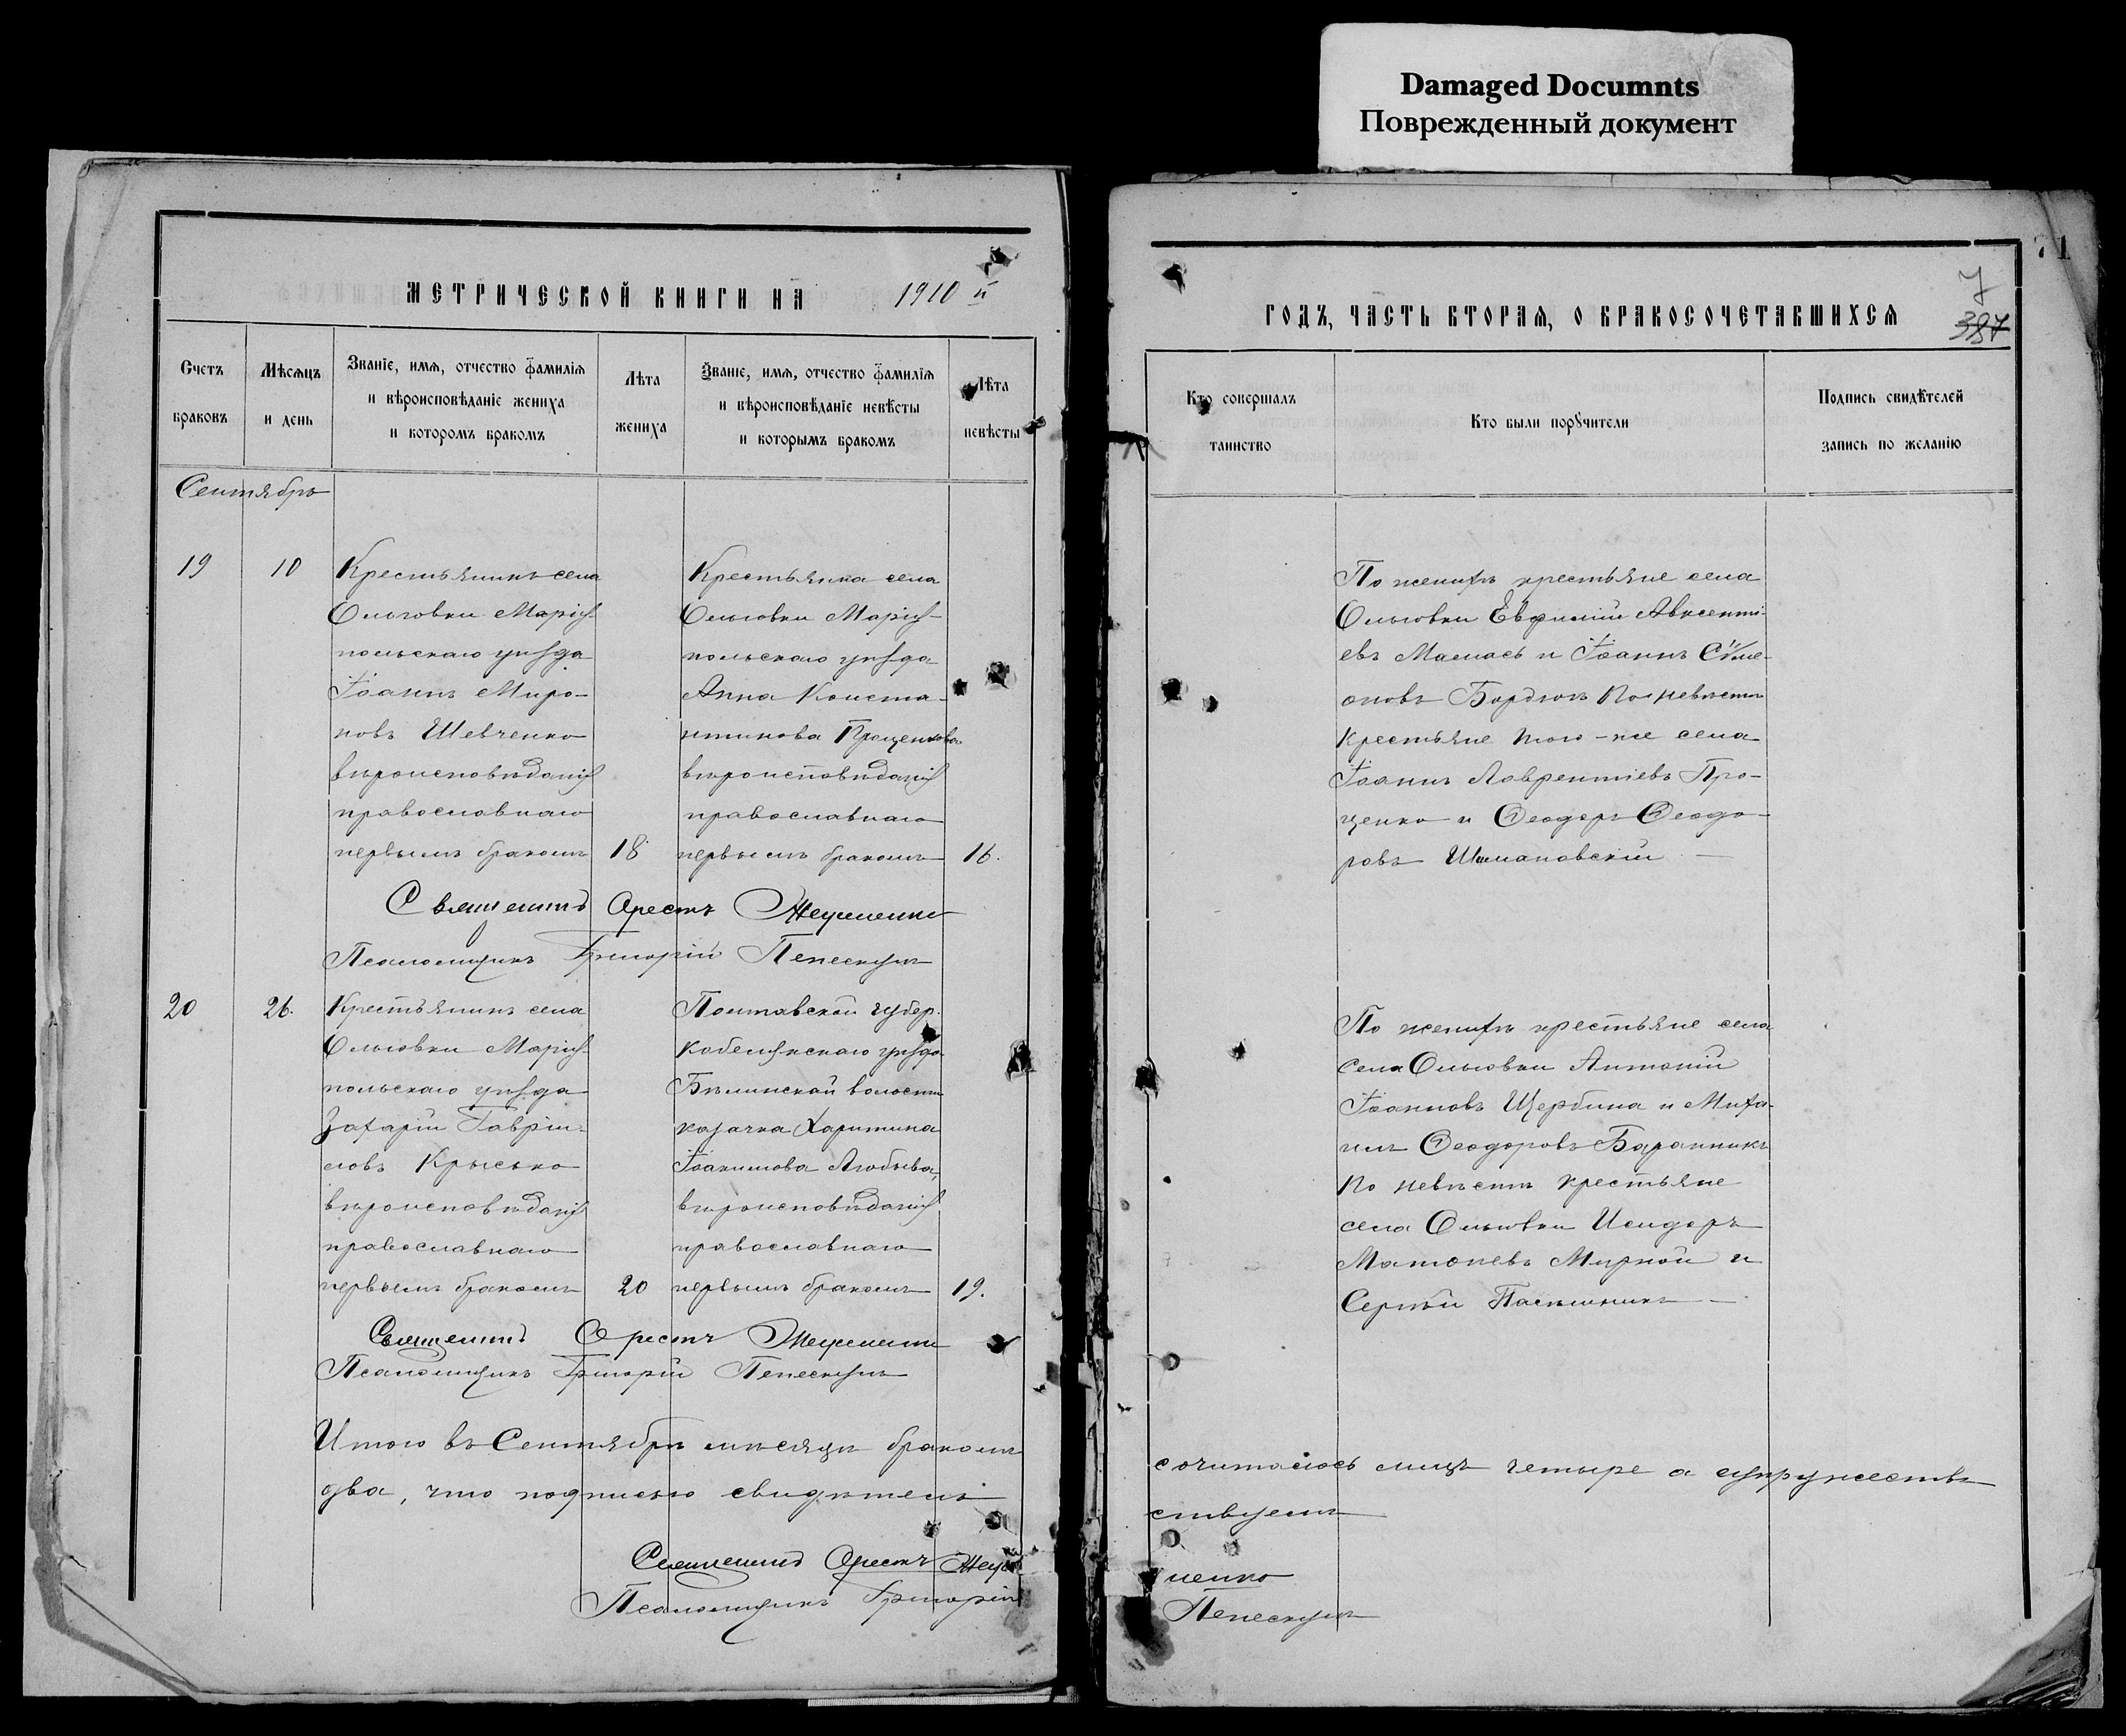 Damaged Documnts
Поврежденный документ
МЕТРИЧЕСКОЙ КНИГИ НА 1910 й
Счетъ
браковъ
Мѣсяцъ
и день
Званіе, имя, отчество фамилія
и вѣроисповѣданіе жениха
и которомъ бракомъ
Лѣта
жениха
Званіе, имя, отчество фамилія
и вѣроисповѣданіе невѣсты
и которымъ бракомъ
Лѣта
невѣсты
Сентябрь
19
10
Крестьянинъ села
Ольговки Маріу-
польскаго уѣзда
Іоаннъ Миро-
новъ Шевченко
вѣроисповѣданія
православнаго
первымъ бракомъ
18
Крестьянка села
Ольговки Маріу-
польскаго уѣзда
АннаКонста-
нтинова Проценкова
вѣроисповѣданія
православнаго
первымъ бракомъ
16.
Священникъ Орестъ
Псаломщикъ Григорій
20
26.
Крестьянинъ села
Ольговки Маріу-
польскаго уѣзда
Захарій Гаврiи-
ловъ Крысько
вѣроисповѣданія
православнаго
первымъ бракомъ
20
Полтавской губер.
Кобелякскаго уѣзда
Бѣлинской волости
казачка Харитина
Іоакимова
вѣроисповѣданія
православнаго
первымъ бракомъ
19.
Священникъ Орестъ
Псаломщикъ Григорій
Итого въ Сентябрѣ мѣсяцѣ бракомъ
два, что подписью свидѣтель
Священникъ Орестъ
Псаломщикъ Григорій
71
7
387
ГОДЪ, ЧАСТЬ ВТОРАЯ, О БРАКОСОЧЕТАВШИХСЯ
Кто совершалъ
таинство
Кто были поручители
Подпись свидѣтелей
запись по желанію
По женихѣ крестьяне села
Ольговки Евфимій Авксенті-
евъ и Іоаннъ Симе-
оновъ Бордюкъ По невѣстѣ
крестьяне того-же села
Іоаннъ Лаврентіевъ Про-
ценко и Ѳеодоръ Ѳеодо-
ровъ Шимановскій
По женихѣ крестьяне села
села Ольговки Антоній
Іоанновъ Щербина и Миха-
илъ Ѳеодоровъ Баранникъ
По невѣстѣ крестьяне
села Ольговки Исидоръ
Мирной и
Сергѣй Пасѣшникъ
сочиталось лицъ четыре а супружествъ
ствуемъ
ненко